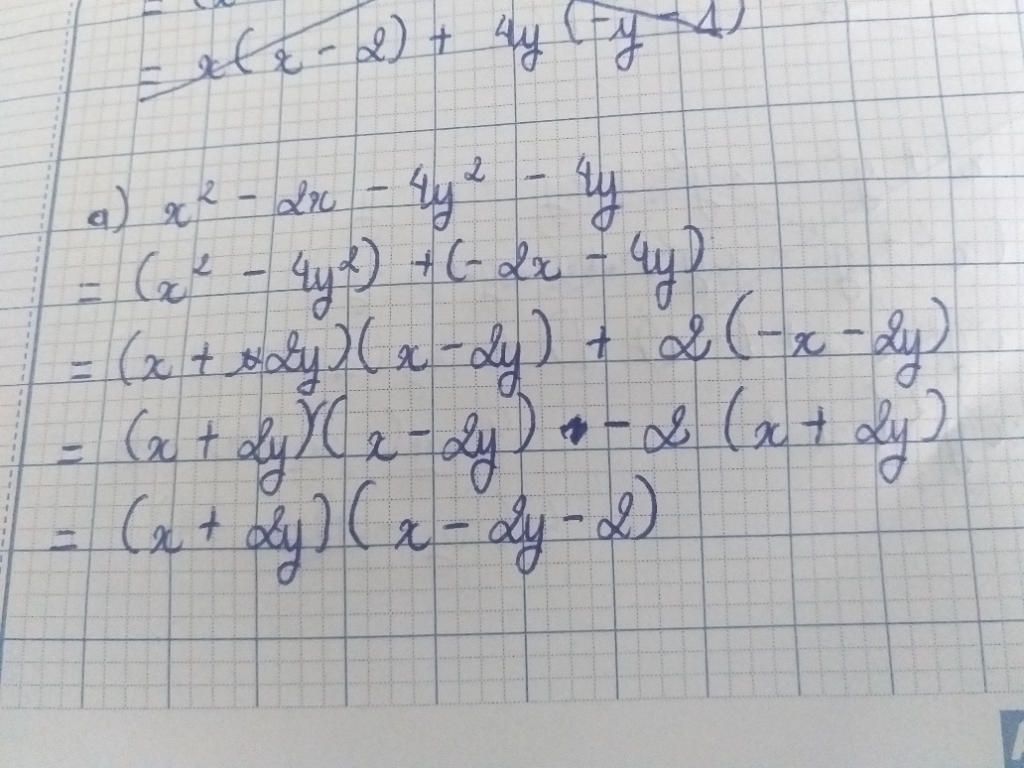 = x(x - 2) + 4y(-y - 1)
a) x² - 2x - 4y² - 4y
= (x² - 4y²) + (- 2x - 4y)
= (x + 2y)(x - 2y) + 2(-x - 2y)
= (x + 2y)(x - 2y) - 2(x + 2y)
= (x + 2y)(x - 2y - 2)